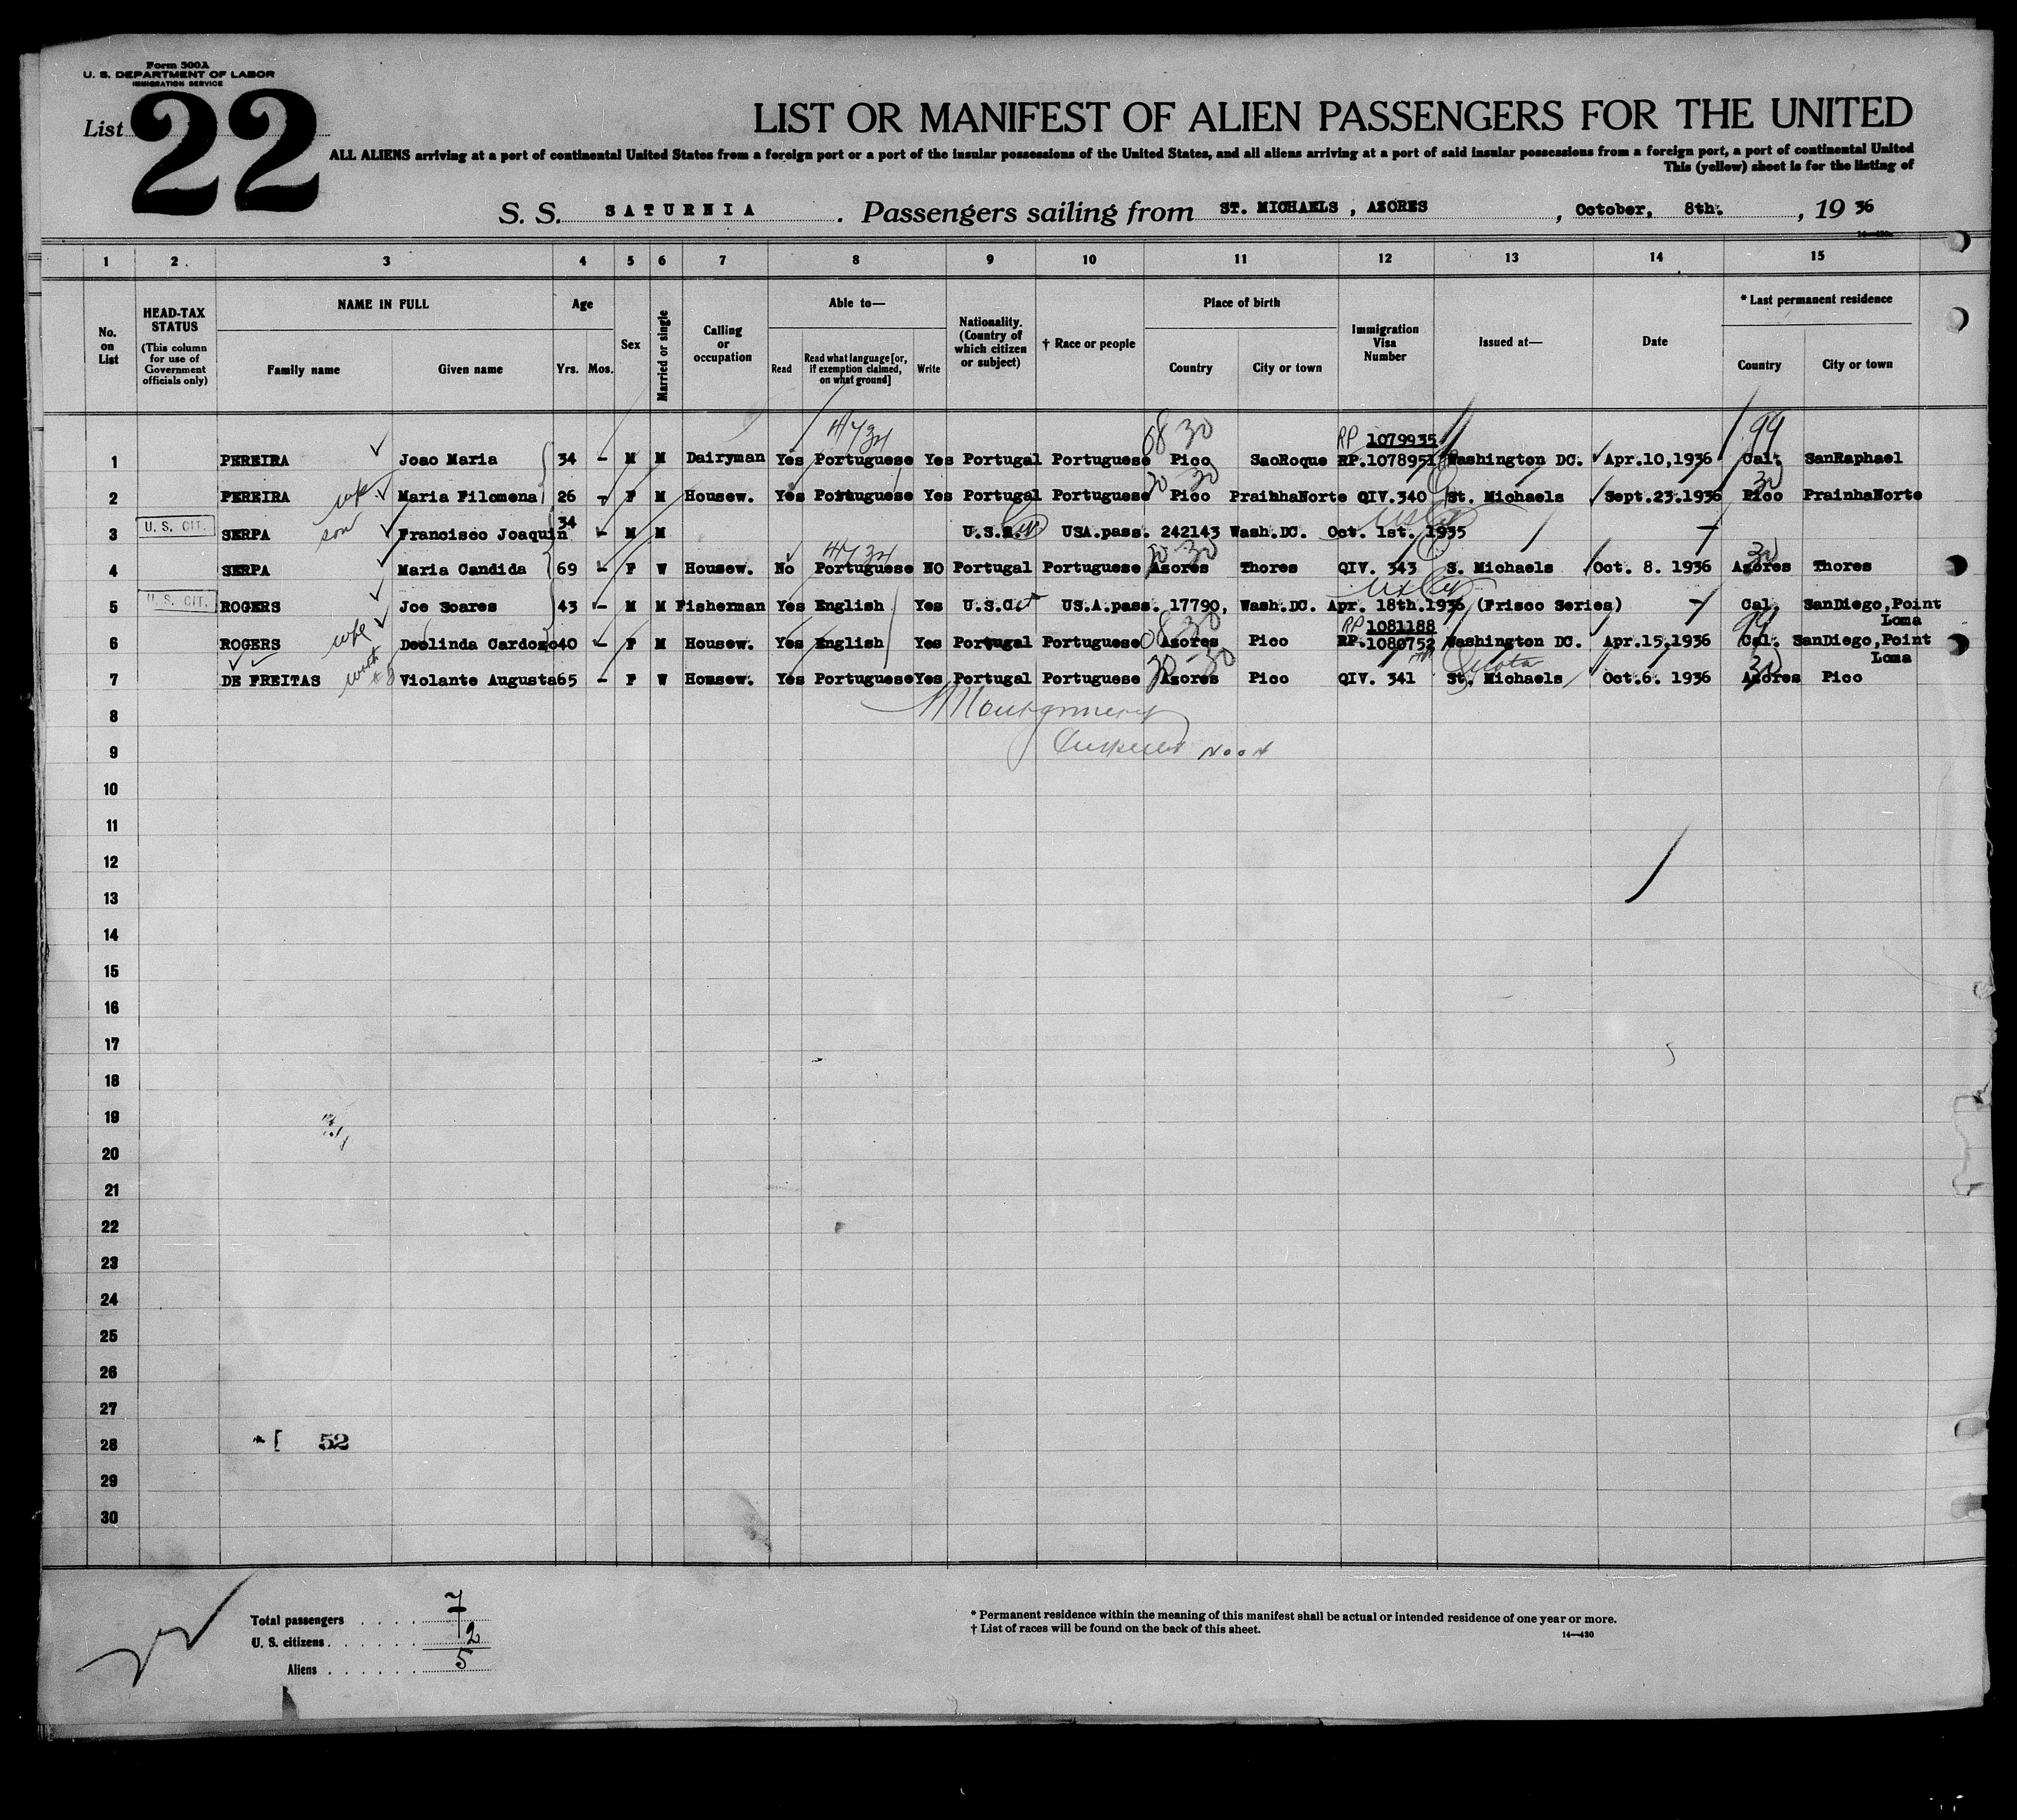 Form 500A
U. S. DEPARTMENT OF LABOR
IMMIGRATION SERVICE
List 22
LIST OR MANIFEST OF ALIEN PASSENGERS FOR THE UNITED
ALL ALIENS arriving at a port of continental United States from a foreign port or a port of the insular possessions of the United States, and all aliens arriving at a port of said insular possessions from a foreign port, a port of continental United
This (yellow) sheet is for the listing of
S. S. SATURNIA. Passengers sailing from ST. MICHAELS , AZORES, October, 8th., 19 36
1 2 3 4 5 6 7 8 9 10 11 12 13 14 15
No. on List
HEAD-TAX STATUS
(This column for use of Government officials only)
NAME IN FULL
Family name Given name
Age
Yrs. Mos.
Sex
Married or single
Calling or occupation
Able to—
Read Read what language [or, if exemption claimed, on what ground] Write
Nationality. (Country of which citizen or subject)
† Race or people
Place of birth
Country City or town
Immigration Visa Number
Issued at—
Date
* Last permanent residence
Country City or town
4734 68 30 RP 1079935 99
1 PEREIRA Joao Maria 34 - M M Dairyman Yes Portuguese Yes Portugal Portuguese Pico SaoRoque RP.1078951 Washington DC. Apr.10,1936 Cal. SanRaphael
30 30 30
2 PEREIRA wfe Maria Filomena 26 - F M Housew. Yes Portuguese Yes Portugal Portuguese Pico PrainhaNorte QIV.340 St. Michaels Sept.23.1936 Pico PrainhaNorte
3 U. S. CIT. SERPA son Francisco Joaquin 34 - M M U.S. USA.pass. 242143 Wash.DC. Oct. 1st. 1935
4734 30 30 30
4 SERPA Maria Candida 69 - F W Housew. No Portuguese NO Portugal Portuguese Azores Thores QIV. 343 S. Michaels Oct. 8. 1936 Azores Thores
5 U. S. CIT. ROGERS Joe Soares 43 - M M Fisherman Yes English Yes U.S.Cit US.A.pass. 17790, Wash.DC. Apr. 18th.1936 (Frisco Series) - Cal. SanDiego,Point Loma
RP 1081188 99
6 ROGERS wfe Deolinda Cardozo 40 - F M Housew. Yes English Yes Portugal Portuguese Azores Pico RP.1080752 Washington DC. Apr.15,1936 Cal. SanDiego,Point Loma
30 30 Quota 30
7 DE FREITAS Violante Augusta 65 - F W Housew. Yes Portuguese Yes Portugal Portuguese Azores Pico QIV. 341 St. Michaels Oct.6. 1936 Azores Pico
8 Montgomery
9
10
11
12
13
14
15
16
17
18
19
20
21
22
23
24
25
26
27
28 52
29
30
Total passengers . . . . . 7
U. S. citizens . . . . . . 2
Aliens . . . . . . 5
* Permanent residence within the meaning of this manifest shall be actual or intended residence of one year or more.
† List of races will be found on the back of this sheet.
14—430